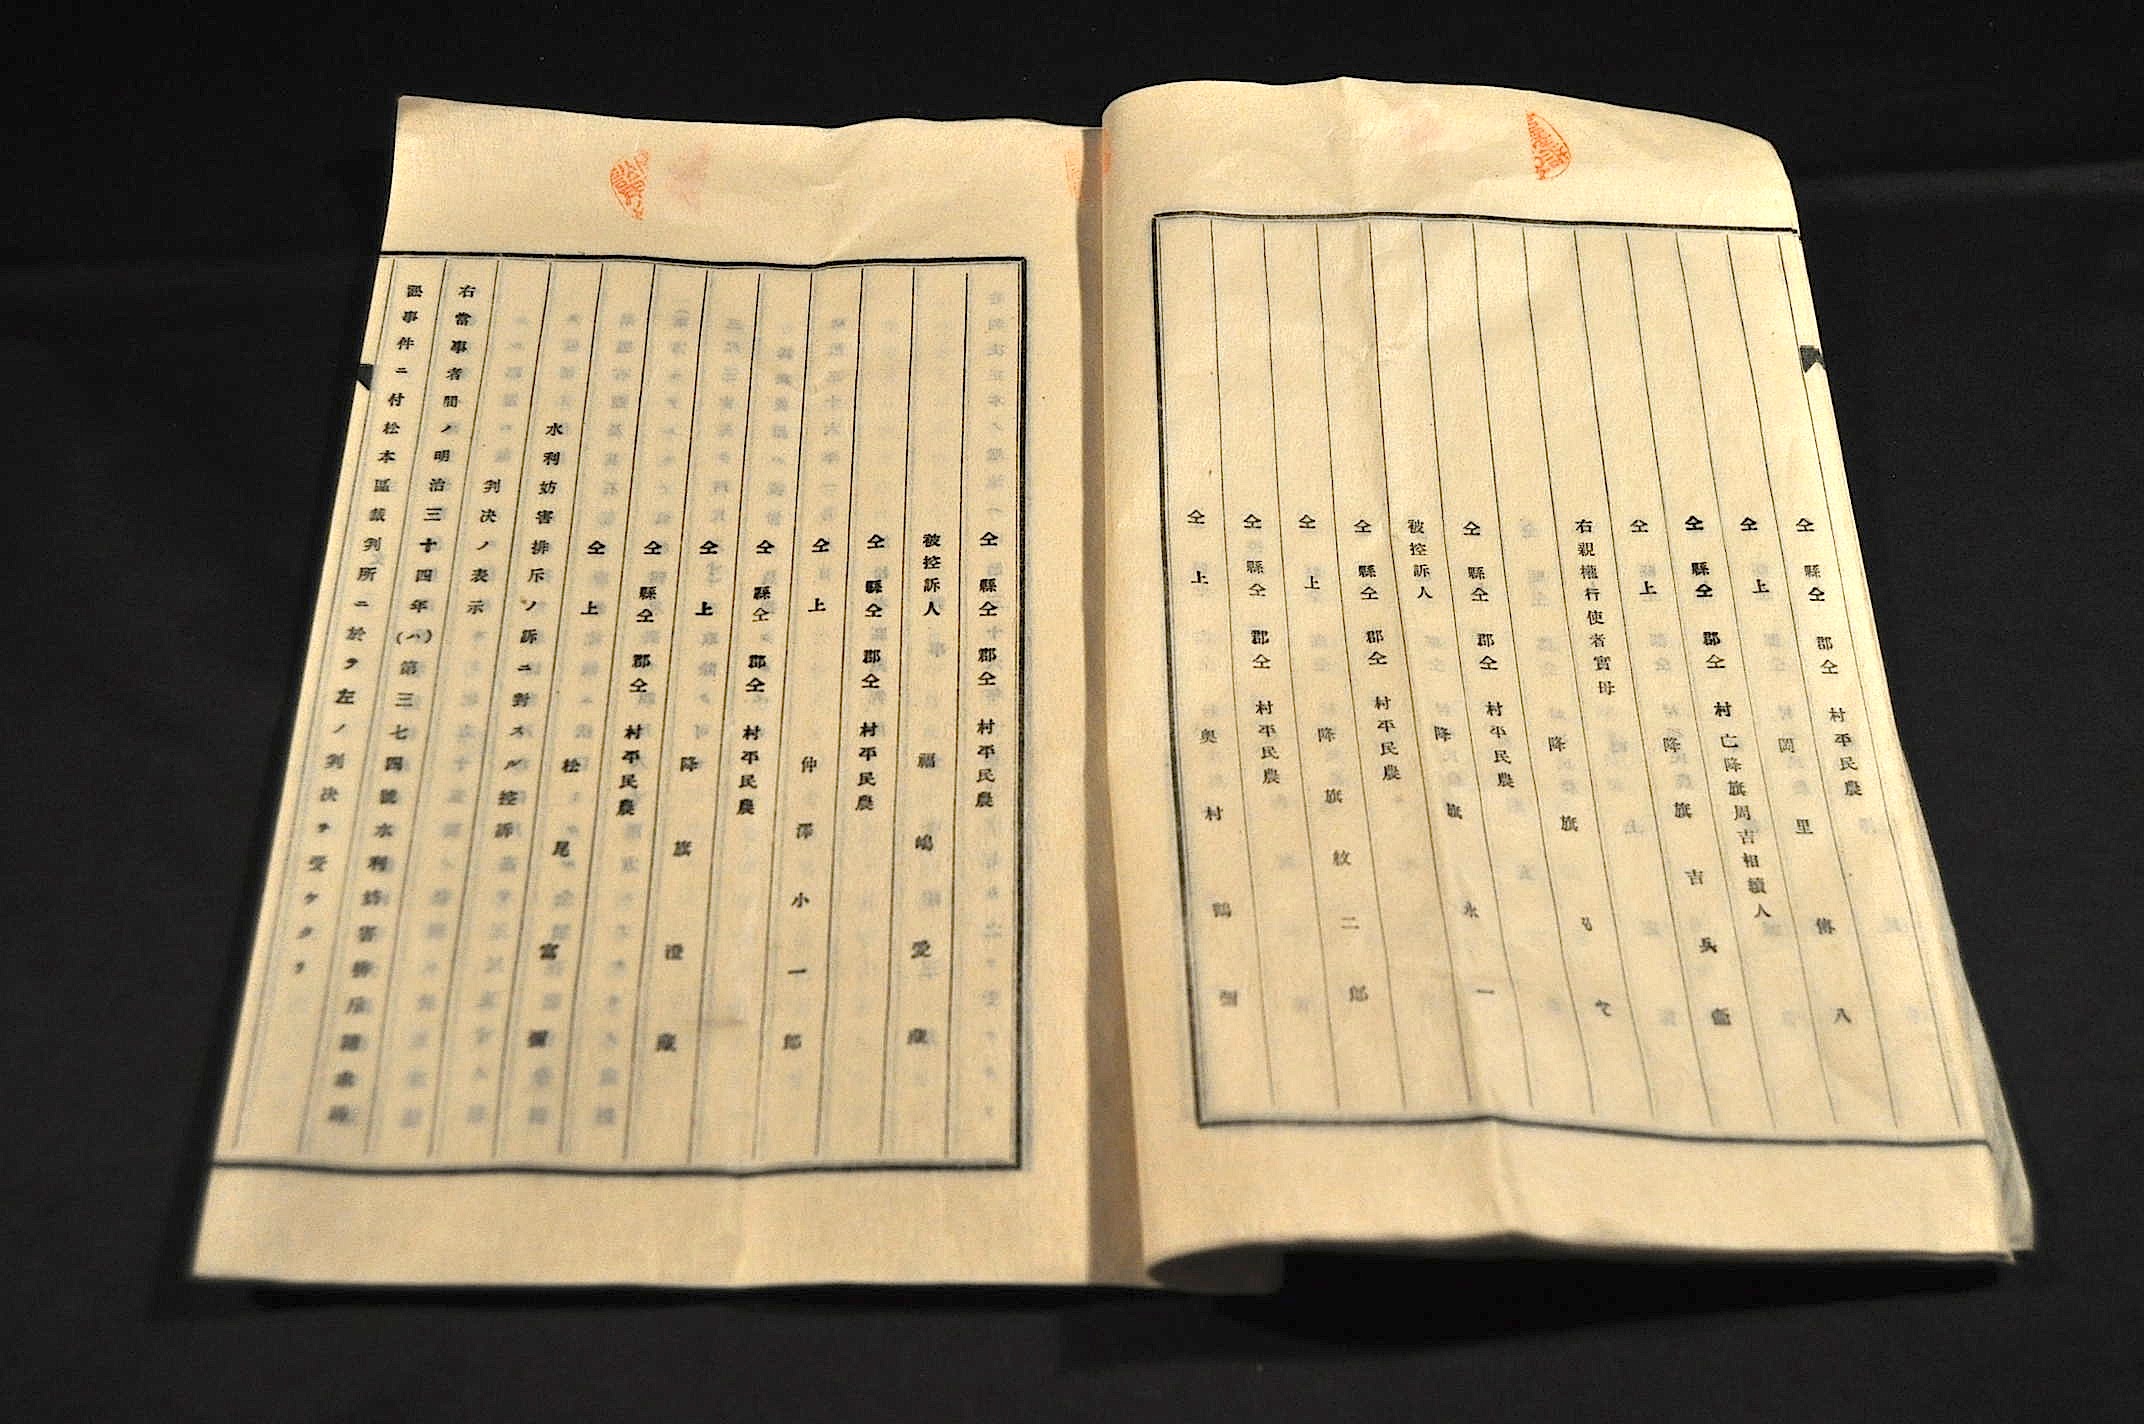 仝縣仝郡仝村平民農
仝上 岡里傳八
仝縣仝郡仝村亡降旗周吉相續人
仝上 降旗吉兵衞
右親權行使者實母
降旗
仝縣仝郡仝村平民農
被控訴人 降旗永一
仝縣仝郡仝村平民農
仝上 降旗紋二郎
仝縣仝郡仝村平民農
仝上 奥村鶴彌
仝縣仝郡仝村平民農
被控訴人 福嶋愛藏
仝縣仝郡仝村平民農
仝上 仲澤小一郎
仝縣仝郡仝村平民農
仝上 降旗澄藏
仝縣仝郡仝村平民農
仝上 松尾富彌
水利妨害排斥ノ訴ニ對スル控訴
判决ノ表示
右當事者間ノ明治三十四年(ハ)第三七四號水利妨害排斥請求訴
訟事件ニ付松本區裁判所ニ於テ左ノ判决ヲ受ケタリ